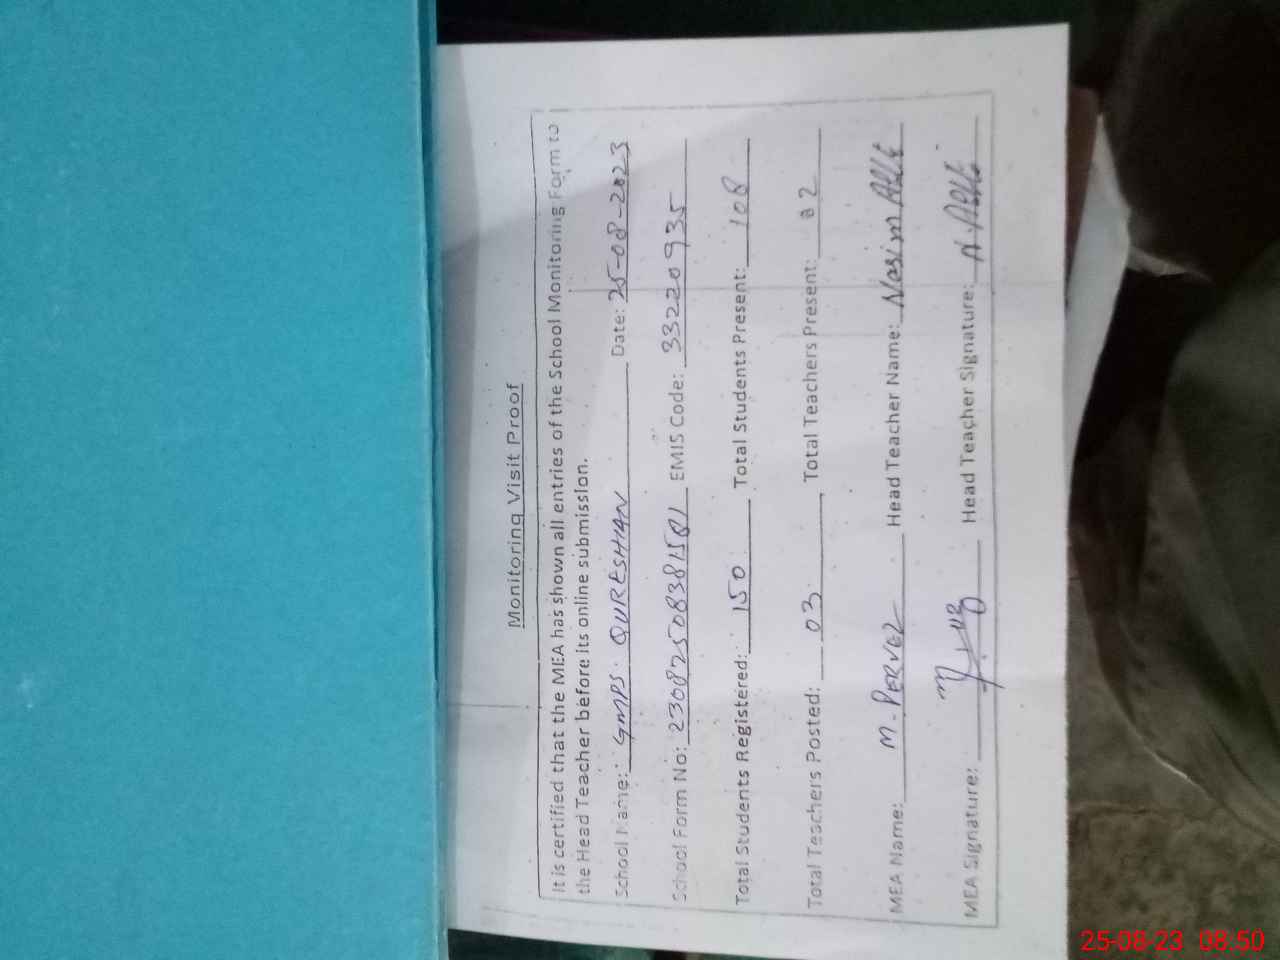 Monitoring Visit Proof
It is certified that the MEA has shown all entries of the School Monitoring Form to
the Head Teacher before its online submission.
School Name: GMPS. QURESHIAN Date: 25-08-2023
School Form No: 23082508381581 EMIS Code: 33220935
Total Students Registered: 150 Total Students Present: 108
Total Teachers Posted: 03 Total Teachers Present: 02
MEA Name: M. PERVEZ Head Teacher Name: Nasim
MEA Signature: Head Teacher Signature: N.
25-08-23 08:50